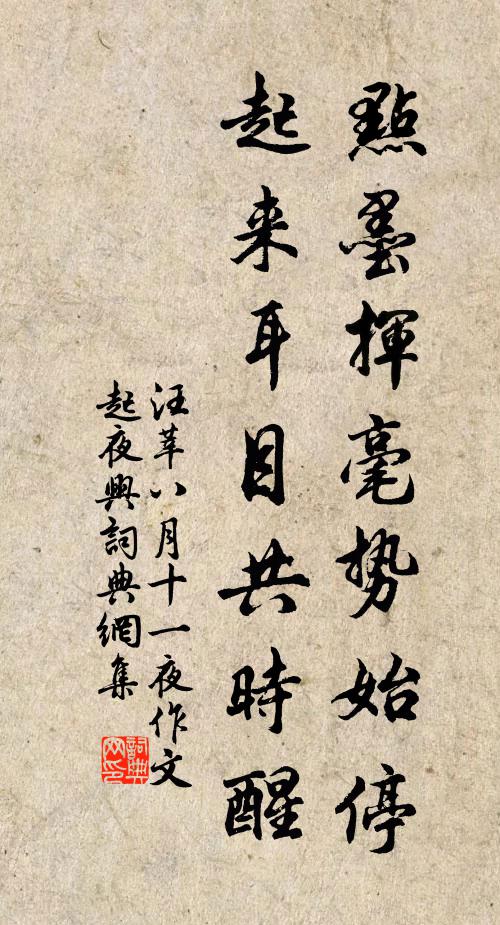 點墨揮毫勢始停
起来耳目共時醒
汪莘八月十一夜作文
起夜興詞典網集
詞典网印